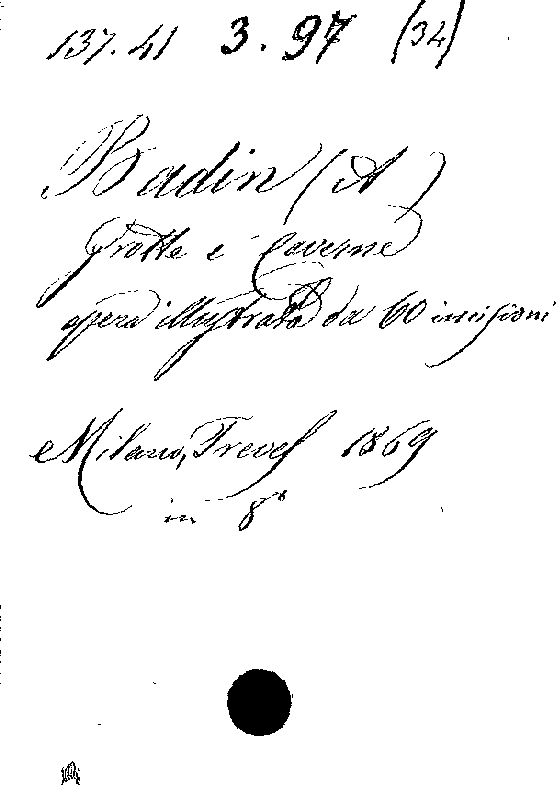 137.41 3.97 (34)
Badin (A)
Grotte e Caverne
opera illustrata da 60 incisioni
Milano, Treves 1869
in 8°